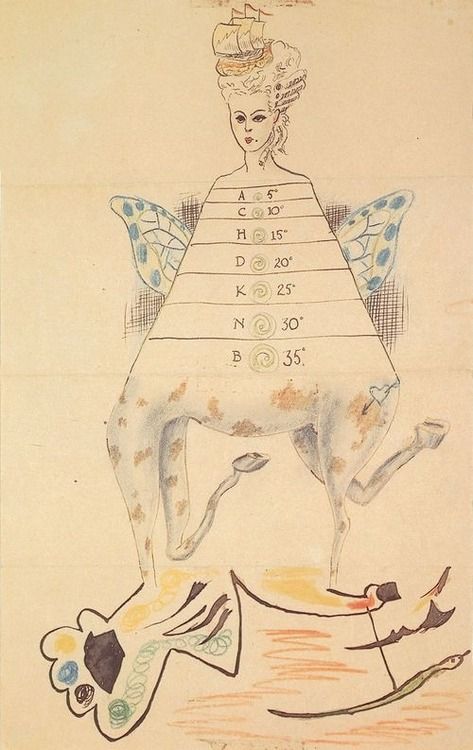 A 5°
C 10°
H 15°
D 20°
K 25°
N 30°
B 35°